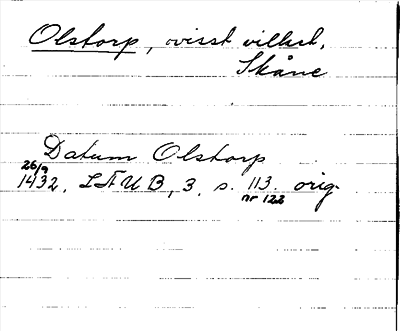 Olstorp, ovisst vilket,
Skåne
Datum Olstorp
26/9
1432, LÄUB, 3, s. 113. orig.
nr 122